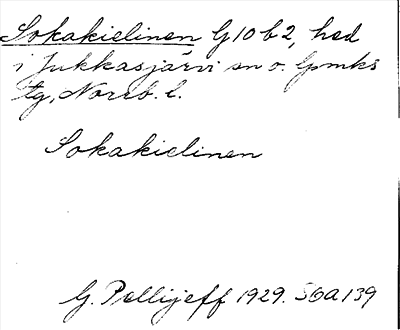 Sokakielinen G10b2, hed
i Jukkasjärvi sn o. Gpmks
tg, Norrb. l.
Sokakielinen
G. Pellijeff 1929. S6a139